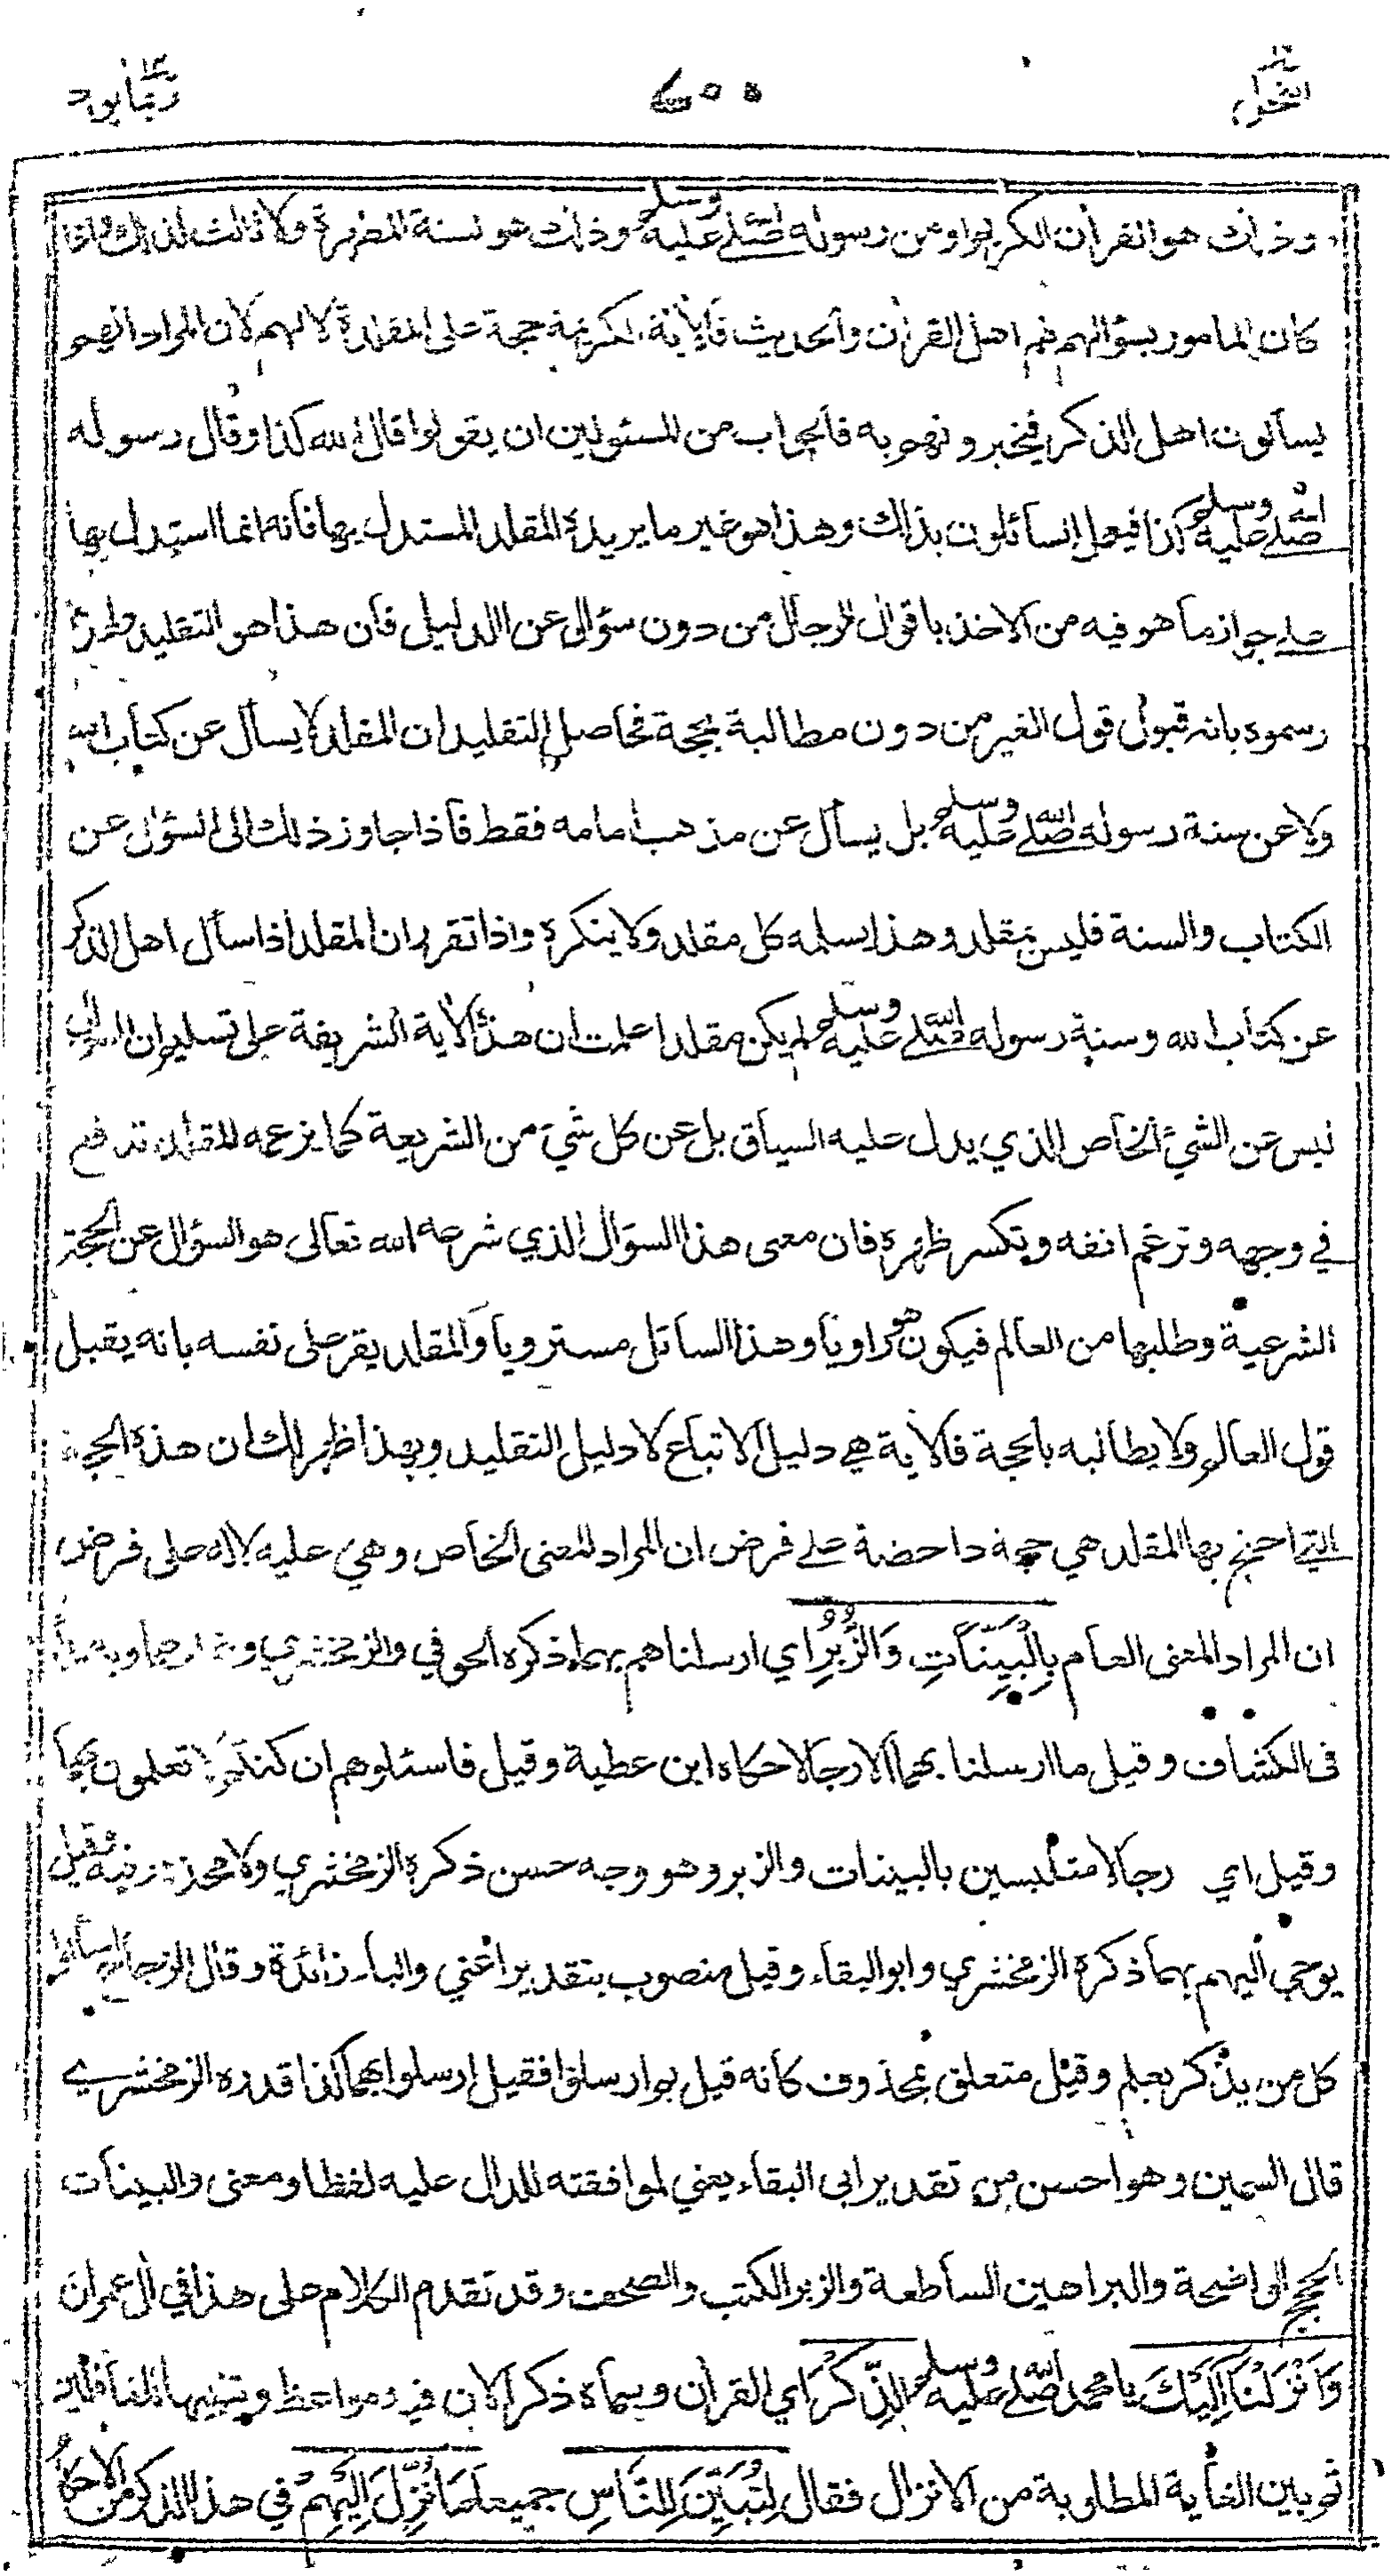 النحل ٧٠٠ ربما يود
وذلك هو القرآن الكريم او من رسوله صلى الله عليه وسلم وذلك هو السنة المطهرة ولا ثالث لذلك واذا
كان المأمور بسؤالهم هم اهل القرآن والحديث فالآية الكريمة حجة على المقلدة لا لهم لان المراد انهم
يسألون اهل الذكر فيخبرونهم به فالجواب من المسئولين ان يقولوا قال الله كذا وقال رسوله
صلى الله عليه وسلم كذا فيعمل السائلون بذلك وهذا هو غير ما يريده المقلد المستدل بها فانه انما استدل بها
على جواز ما هو فيه من الاخذ باقوال الرجال من دون سؤال عن الدليل فان هذا هو التقليد ولهذا
رسموه بانه قبول قول الغير من دون مطالبة بحجة فحاصل التقليد ان المقلد لا يسأل عن كتاب الله
ولا عن سنة رسوله صلى الله عليه وسلم بل يسأل عن مذهب امامه فقط فاذا جاوز ذلك الى السؤال عن
الكتاب والسنة فليس بمقلد وهذا يسلمه كل مقلد ولا ينكره واذا تقرر ان المقلد اذا سأل اهل الذكر
عن كتاب الله وسنة رسوله صلى الله عليه وسلم لم يكن مقلدا علمت ان هذه الآية الشريفة على تسليم ان السؤال
ليس عن الشيء الخاص الذي يدل عليه السياق بل عن كل شيء من الشريعة كما يزعمه المقلد تدفع
في وجهه وترغم انفه وتكسر ظهره فان معنى هذا السؤال الذي شرعه الله تعالى هو السؤال عن الحجة
الشرعية وطلبها من العالم فيكون هو راويا وهذا السائل مسترويا والمقلد يقر على نفسه بانه يقبل
قول العالم ولا يطالبه بالحجة فالآية هي دليل الاتباع لا دليل التقليد وبهذا ظهر لك ان هذه الحجة
التي احتج بها المقلد هي حجة داحضة على فرض ان المراد المعنى الخاص وهي عليه لا له على فرض
ان المراد المعنى العام بِالْبَيِّنَاتِ وَالزُّبُرِ اي ارسلناهم بهما ذكره الحوفي والزمخشري وغيرهما وبه بدأ
فى الكشاف وقيل ما ارسلنا بهما الا رجالا حكاه ابن عطية وقيل فاسئلوهم ان كنتم لا تعلمون بهما
وقيل اي رجالا متلبسين بالبينات والزبر وهو وجه حسن ذكره الزمخشري ولا محذور فيه وقيل
يوحى اليهم بهما ذكره الزمخشري وابو البقاء وقيل منصوب بتقدير اعني والباء زائدة وقال الزجاج اسألوا
كل من يذكر بعلم وقيل متعلق بمحذوف كانه قيل بم ارسلوا فقيل ارسلوا بهما كذا قدره الزمخشري
قال السمين وهو احسن من تقدير ابى البقاء يعني لموافقته للدال عليه لفظا ومعنى والبينات
الحجج الواضحة والبراهين الساطعة والزبر الكتب والصحف وقد تقدم الكلام على هذا في ال عمران
وَاَنْزَلْنَا اِلَيْكَ يا محمد صلى الله عليه وسلم الذِّكْرَ اي القرآن وسماه ذكرا لان فيه مواعظ وتنبيها للغافلين
ثم بين الغاية المطلوبة من الانزال فقال لِتُبَيِّنَ لِلنَّاسِ جميعا مَا نُزِّلَ اِلَيْهِمْ في هذا الذكر من الاحكام